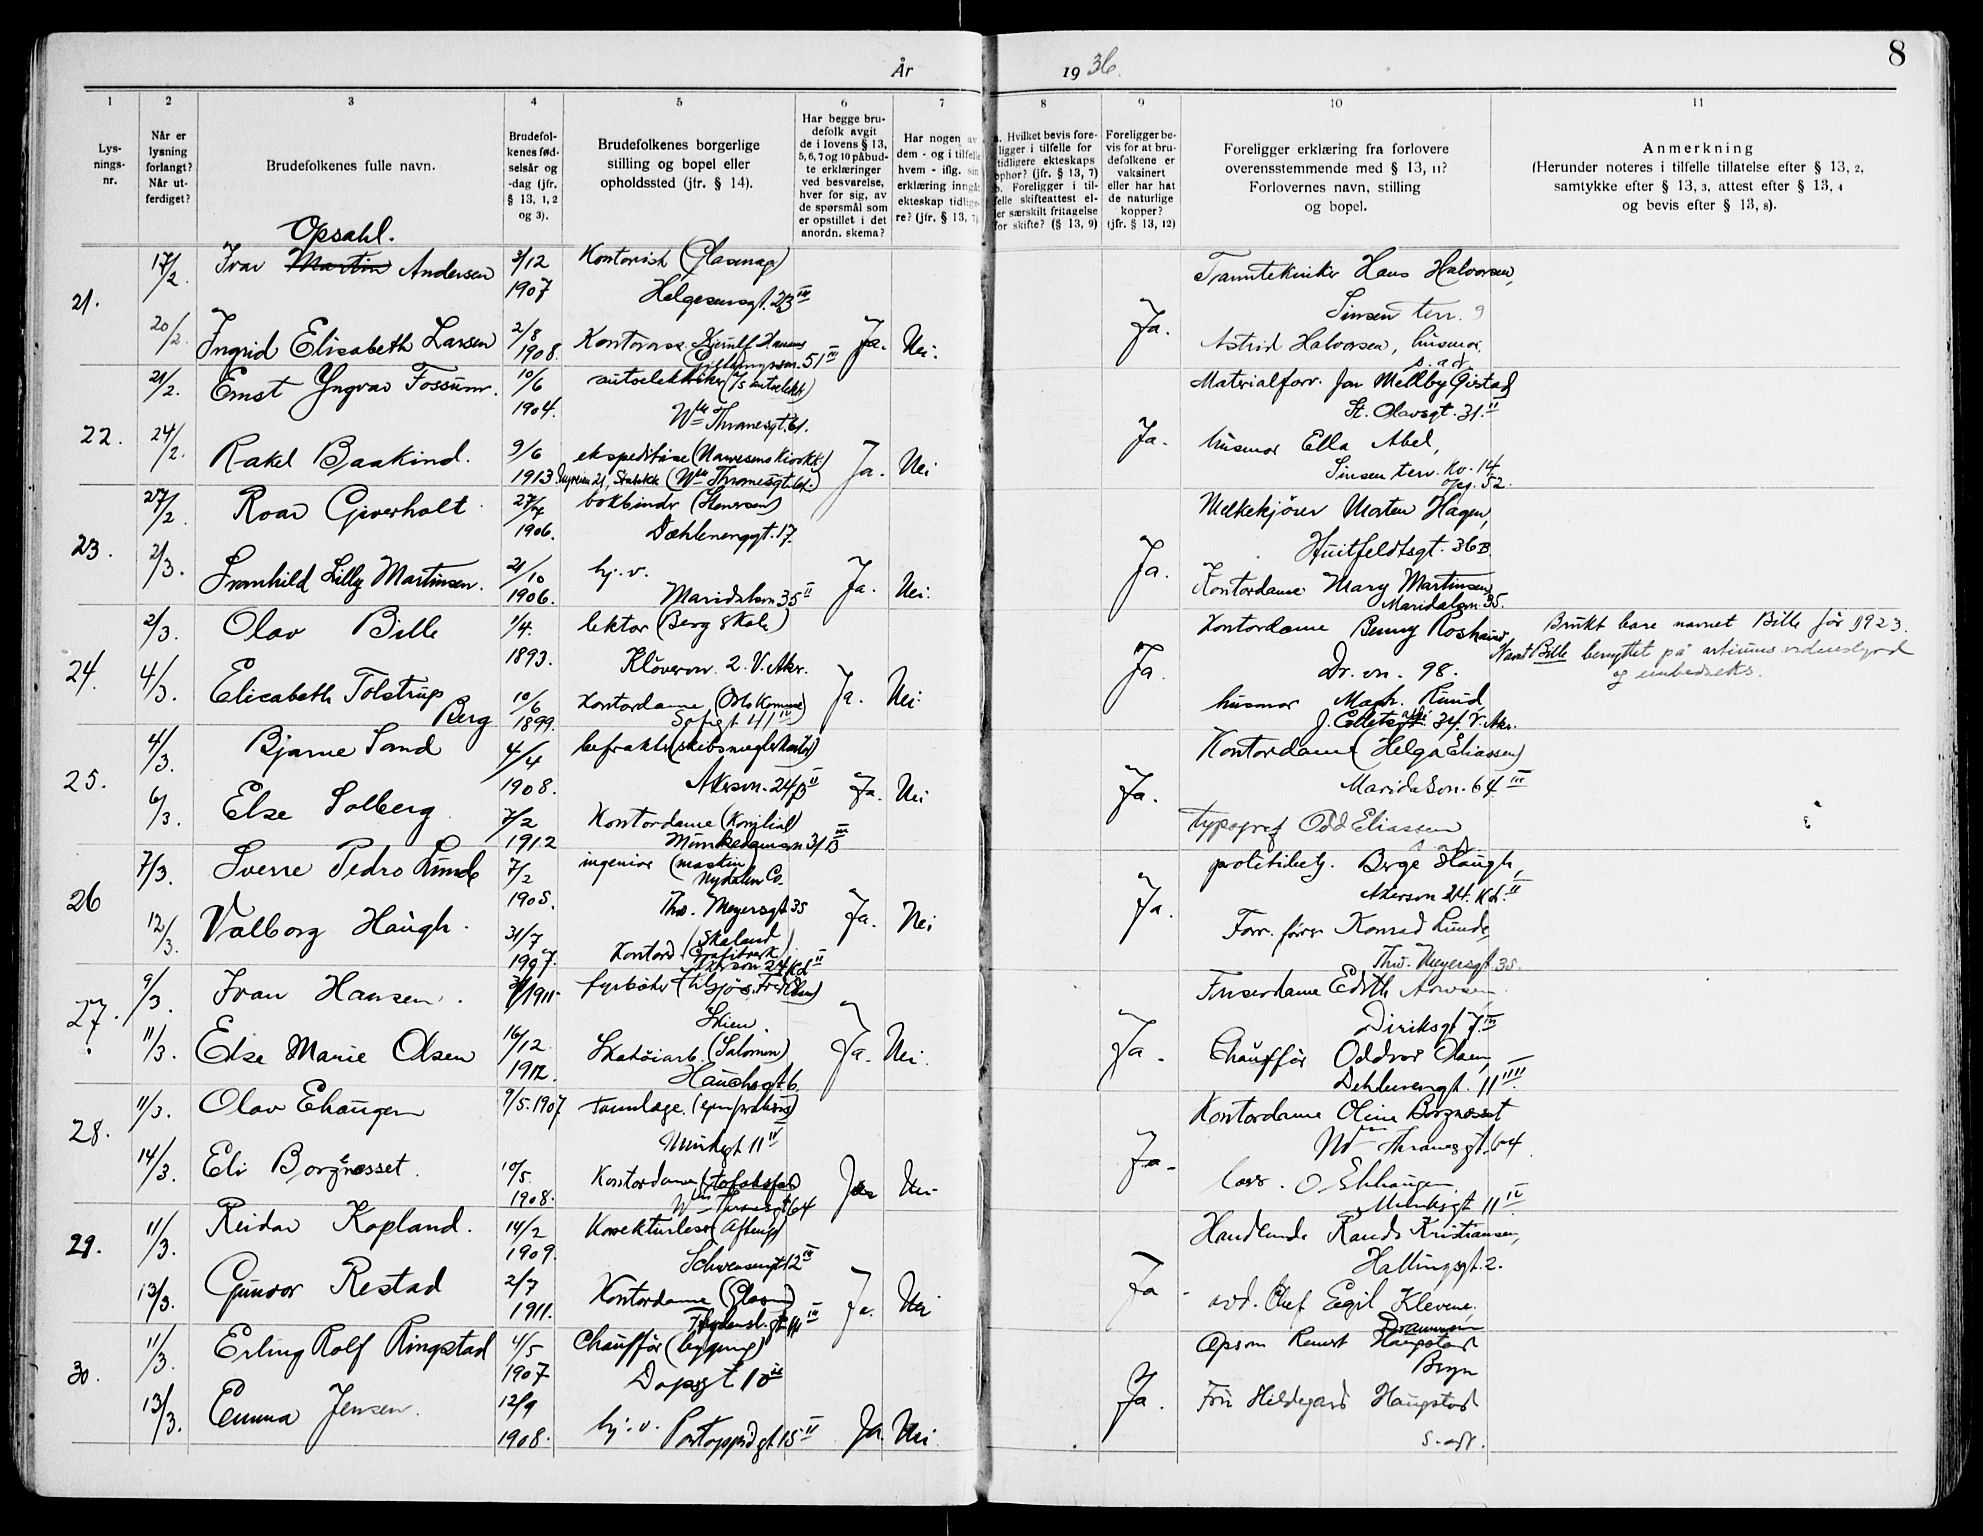 År 1936.
8
1 2 3 4 5 6 7 8 9 10 11
Lys-
nings-
nr.
Når er
lysning
forlangt?
Når ut-
ferdiget?
Brudefolkenes fulle navn.
Brudefol-
kenes fød-
selsår og
-dag (jfr.
§ 13, 1, 2
og 3).
Brudefolkenes borgerlige
stilling og bopel eller
opholdssted (jfr. § 14).
Har begge bru-
defolk avgit
de i lovens § 13,
5, 6, 7 og 10 påbud-
te erklæringer
ved besvarelse,
hver for sig, av
de spørsmål som
er opstillet i det
anordn. skema?
Har nogen av
dem - og i tilfelle
hvem - iflg. sin
erklæring inngått
ekteskap tidlige-
re? (jfr. § 13, 7).
a. Hvilket bevis fore-
ligger i tilfelle for
tidligere ekteskaps
ophør? (jfr. § 13, 7)
b. Foreligger i til-
felle skifteattest el-
ler særskilt fritagelse
for skifte? (§ 13, 9)
Foreligger be-
vis for at bru-
defolkene er
vaksinert
eller har hat
de naturlige
kopper?
(jfr. § 13, 12)
Foreligger erklæring fra forlovere
overensstemmende med § 13, 11?
Forlovernes navn, stilling
og bopel.
Anmerkning
(Herunder noteres i tilfelle tillatelse efter § 13, 2,
samtykke efter § 13, 3, attest efter § 13, 4
og bevis efter § 13, 8).
Opsahl.
21.
17/2. Ivar Martin Andersen 3/12 1907 Kontorist (Glasmag)
Helgesensgt. 23 III
Tanntekniker Hans Halvorsen,
Sinsen terr. 9
20/2. Ingrid Elisabeth Larsen 2/8 1908. Kontorass. Kjerulf Hansen
51 III Ja. Nei. Ja.
Astrid Halvorsen, husmor,
s. ad
22.
21/2. Ernst Yngvar Fossum. 10/6 1904. autoelektriker
Wm Thranesgt. 61.
Materialforv. Jon Mellby Gistad
St. Olavsgt. 31. II
24/2. Rakel Baakind. 9/6 1913 ekspeditrise (Narvesens Kiosk)
Stabekk (Wm Thranesgt. 61.) Ja. Nei Ja.
husmor Ella Abel,
Sinsen terr. Kv. 14
opg. 52.
23.
27/2. Roar Gjverholt 27/7 1906. bokbinder (Stenersen)
Dæhlenenggt. 17.
Melkekjører Morten Hagen,
Huitfeldtsgt. 36B.
2/3. Framhild Lilly Martinsen. 21/10 1906. hj. v.
Maridalsvn 35 II Ja. Nei. Ja.
Kontordame Mary Martinsen
Maridalsvn 35.
24.
2/3. Olav Bille 1/4. 1893. lektor (Berg skole)
Kløvervn. 2. V. Akr.
Kontordame Benny Roshauw
Dr. vn. 98.
Brukt bare navnet Bille før 1923.
Navnet Bille benyttet på artiums vidnesbyrd
og embedseks.
4/3. Elisabeth Tolstrup
Berg 10/6 1899. Kontordame (Oslo Komune)
Sofigt 41 IV Ja. Nei. Ja.
husmor Magh. Ruud,
J. Collets allé 34. V. Akr.
25.
4/3. Bjarne Sand 4/4 1908. befrakter (skibsmeglerkontor)
Akersvn. 24 II
Kontordame (Helga Eliassen)
Maridalsvn. 64. III
6/3. Else Solberg 7/2 1912 Kontordame
Munkedamsvn 31 B III Ja. Nei Ja.
typograf Odd Eliassen
s. ad
26
7/3. Sverre Pedro Lunde 7/2 1905. ingeniør (maskin)
Nydalen Co.
Thv. Meyersgt 35
politibetj. Berge Haugh,
Akersvn 24. Kd. II
12/3. Valborg Haugh. 31/7 1907. Kontord. (Skaland
Grafitverk)
Akersvn 24 Kd II Ja. Nei Ja.
Forr. fører Konrad Lunde,
Thv. Meyersgt 35.
27.
9/3. Ivar Hansen. 1911 fyrbøter (tilsjøs. Fred Olsen)
Skien.
Friserdame Edith
Diriksgt 7. III
11/3. Else Marie Olsen 16/12 1912. Skotøiarb. (Salomon)
Hauchsgt 6. Ja. Nei. Ja.
Chauffør Oddvar Olsen,
11 IIII
28.
11/3. Olav Ehaugen 9/5. 1907 tannlæge. (egen praksis)
Munkgt 11 IV
Kontordame Oline Borgnesset
Wm Thranesgt. 64
14/3. Eli Borgnesset. 10/5. 1908. Kontordame
Wm Thranesgt 64 Ja Nei. Ja.
O. Ekhaugen
Munksgt 11 IV
29.
11/3. Reidar Kopland. 14/2 1909. Korrekturleser (Aftenp)
Schwensengt 12 IV
Handlende Randi Kristiansen,
Hallingsgt. 2.
13/3. Gunvor Restad 2/7 1911. Kontordame (Glasm)
Ja. Nei Ja.
avd. Chef Egil Klevene,
Drammen
30.
11/3. Erling Rolf Ringstad 4/5 1907 Chauffør
Dopsgt 10 III
Opsm Haugstad
Bryn
13/3. Emma Jensen. 12/9 1908. hj. v. Portopprud gt. 15 II Ja. Nei. Ja.
Fru Hildegard Haugstad
s. ad.